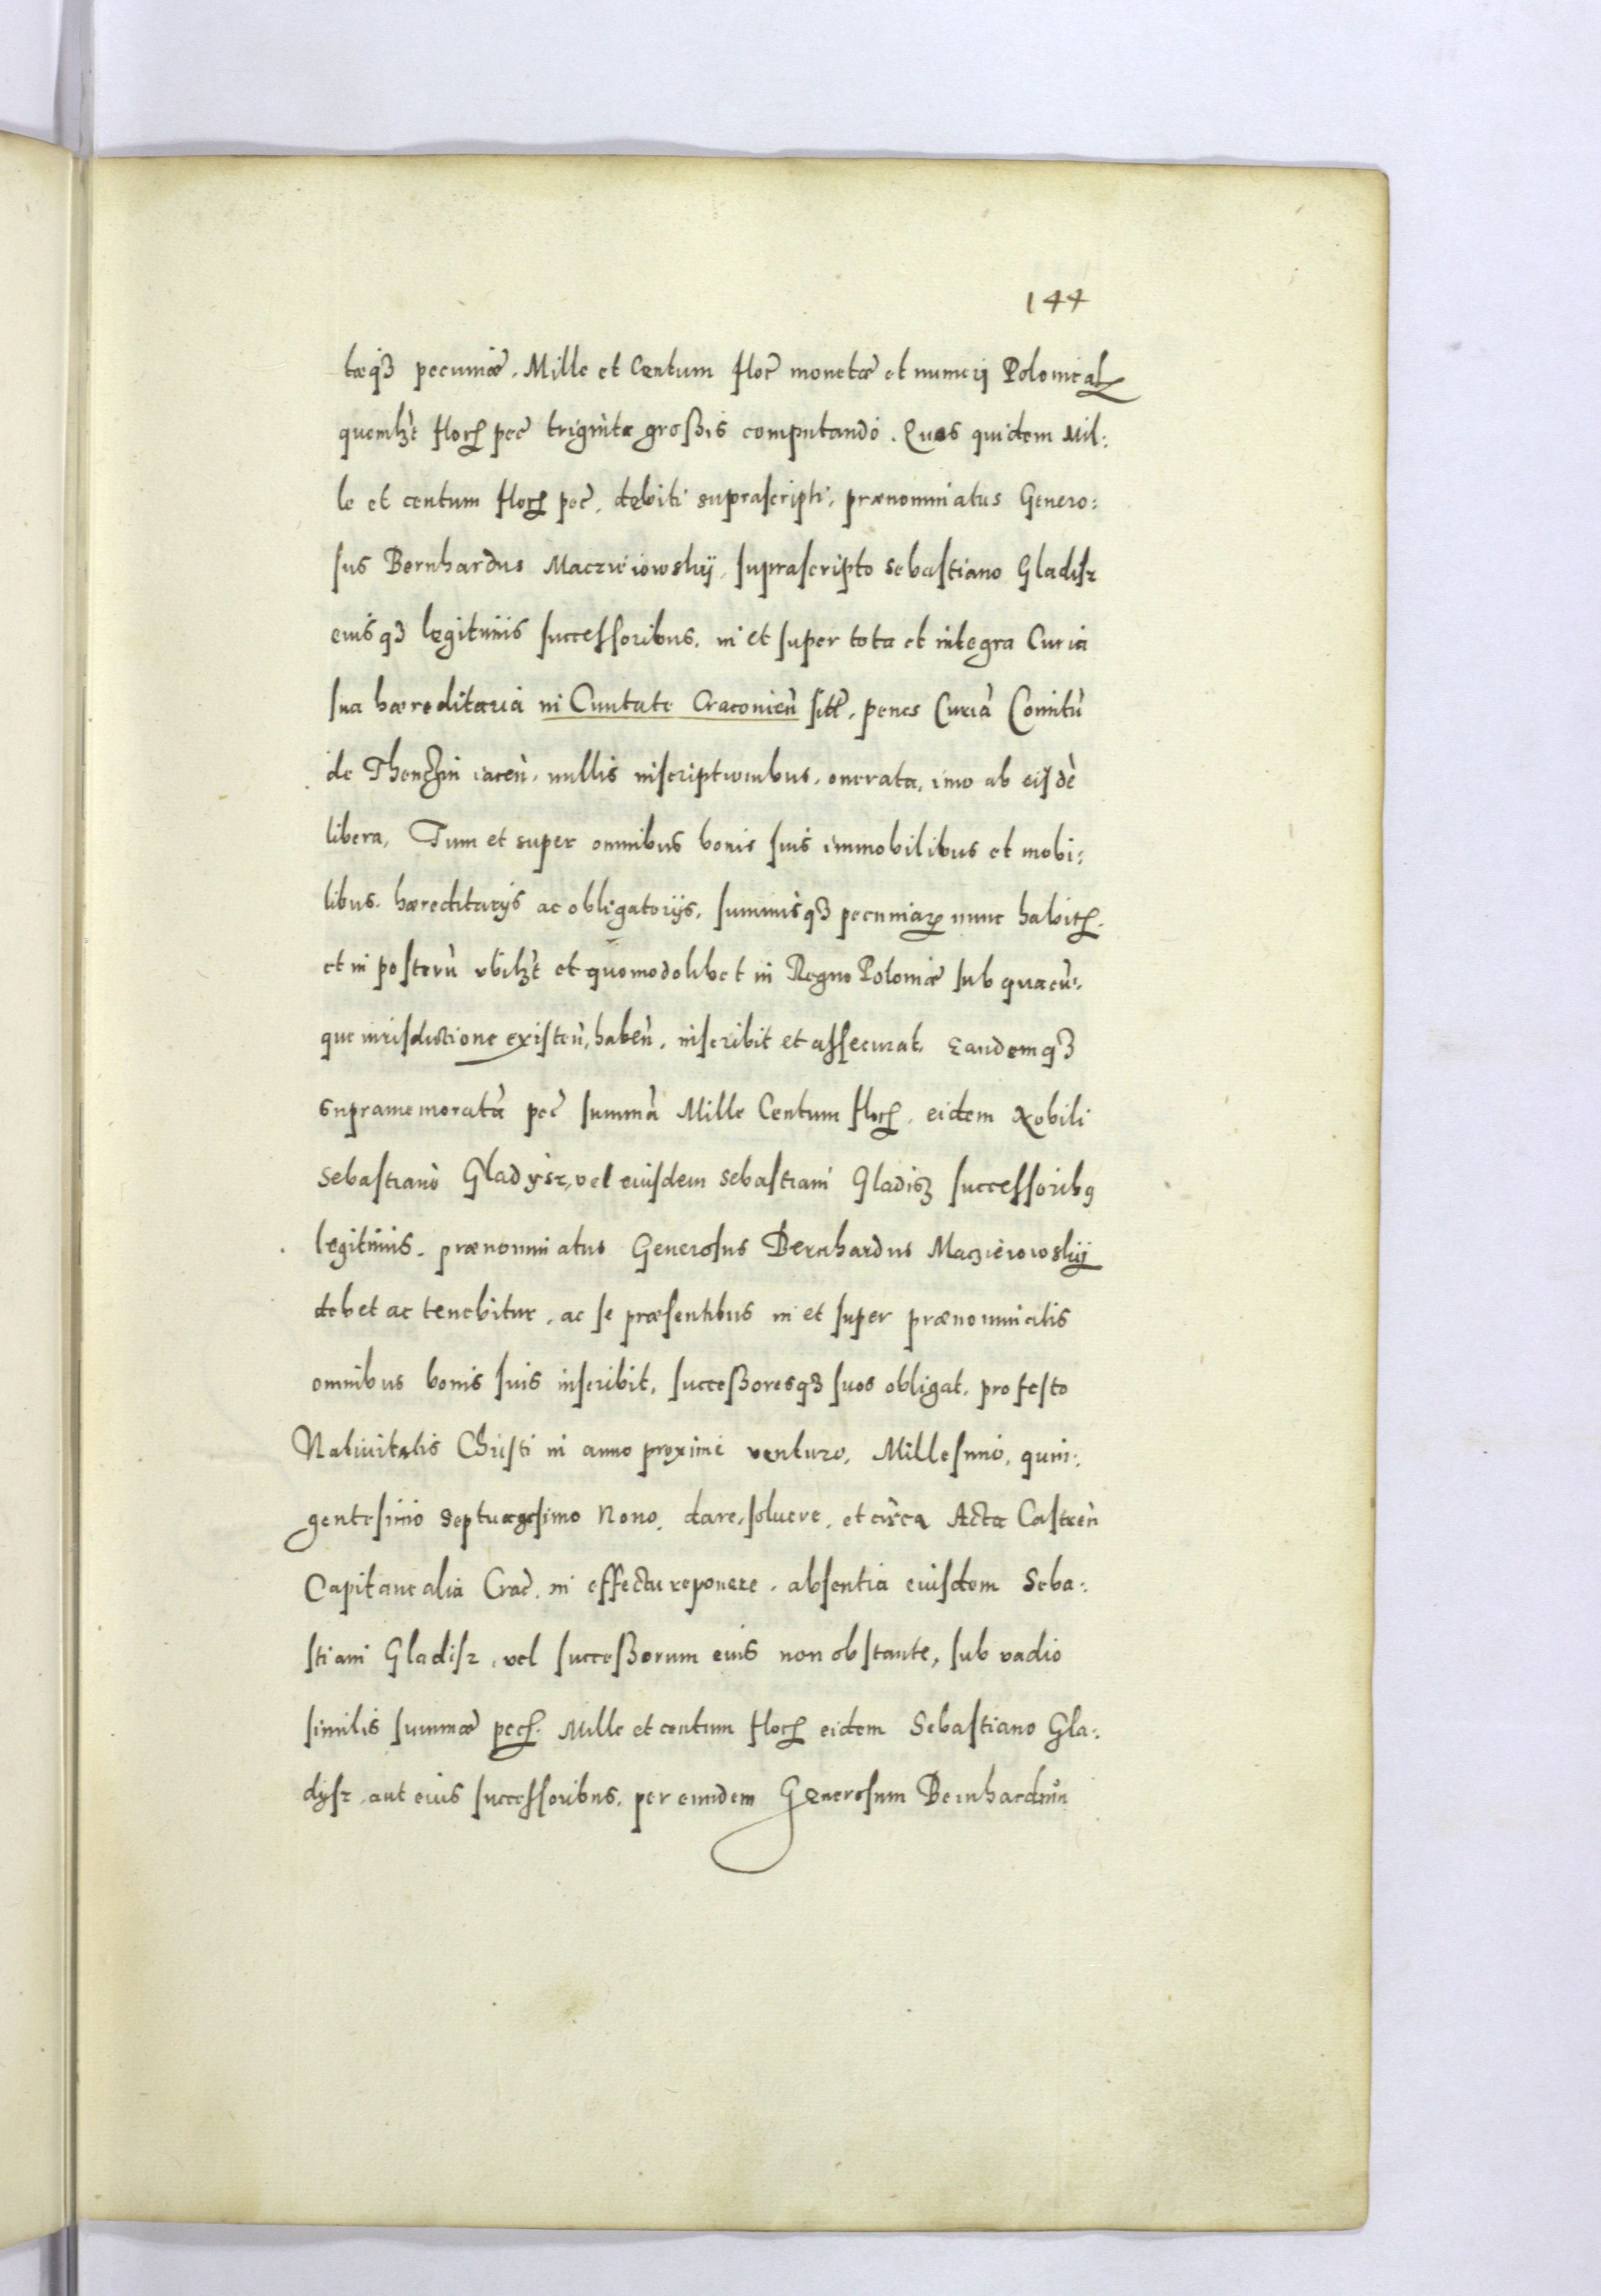 144
tæq3 pecuniæ. Mille et Centum floc̃ monetæ et numeri Polonical
quemlzt floꝝ pec̃ triginta großis computando. Quos quidem Mil:
le et centum floꝝ pec̃. debiti suprascripti, prænominatus Genero:
sus Bernhardus Maczieiowskij, suprascripto Sebastiano Gladisz
eiusq3 legitimis successoribus, in et super tota et integra Curia
sua hæreditaria in Ciuitate Cracovień sitt, penes Curiã Comitũ
de Thenczin iaceñ, nullis inscriptionibus, onerata, imo ab eisdẽ
libera, Tum et super omnibus bonis suis immobilibus et mobi:
libus, hæreditarijs ac obligatorijs, summisq3 pecuniarꝝ nunc habitꝝ
et in posterũ vbilzt et quomodolibet in Regno Poloniæ sub quacũ:
que iurisdictione existeñ, habeñ, inscribit et assecurat. Eandemq3
supramemoratã pec̃ summã Mille Centum floꝝ, eidem Nobili
Sebastiano Gladysz, vel eiusdem Sebastiani Gladisz successoribꝰ
legitimis, prænominatus Generosus Bernhardus Maczieiowskij
debet ac tenebitur, ac se præsentibus in et super prænominatis
omnibus bonis suis inscribit, succeßoresq3 suos obligat, pro festo
Natiuitatis Christi in anno proxime venturo, Millesimo, quin:
gentesimo Septuagesimo Nono, dare, soluere, et circa Acta Castreñ
Capitanealia Crac̃. in effectu reponere, absentia eiusdem Seba:
stiani Gladisz, vel succeßorum eius non obstante, sub vadio
similis summæ pecꝝ. Mille et centum floꝝ eidem Sebastiano Gla:
dysz, aut eius successoribus, per eundem Generosum Bernhardũ